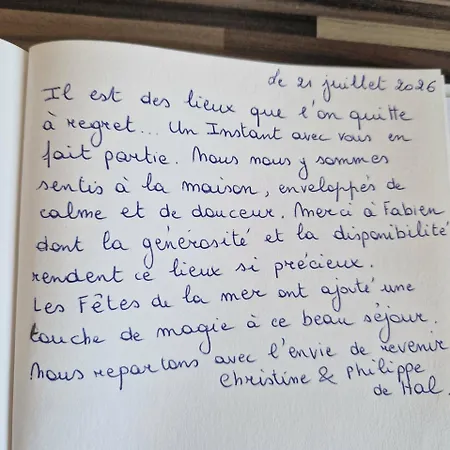 Le 21 juillet 2026
Il est des lieux que l'on quitte
à regret... Un Instant avec vous en
fait partie. Nous nous y sommes
sentis à la maison, enveloppés de
calme et de douceur. Merci à Fabien
dont la générosité et la disponibilité
rendent ce lieux si précieux.
Les Fêtes de la mer ont ajouté une
touche de magie à ce beau séjour.
Nous repartons avec l'envie de revenir
Christine & Philippe
de Hal.